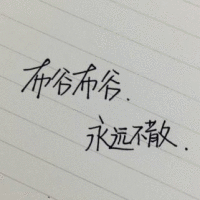 布谷布谷.
永远不散.